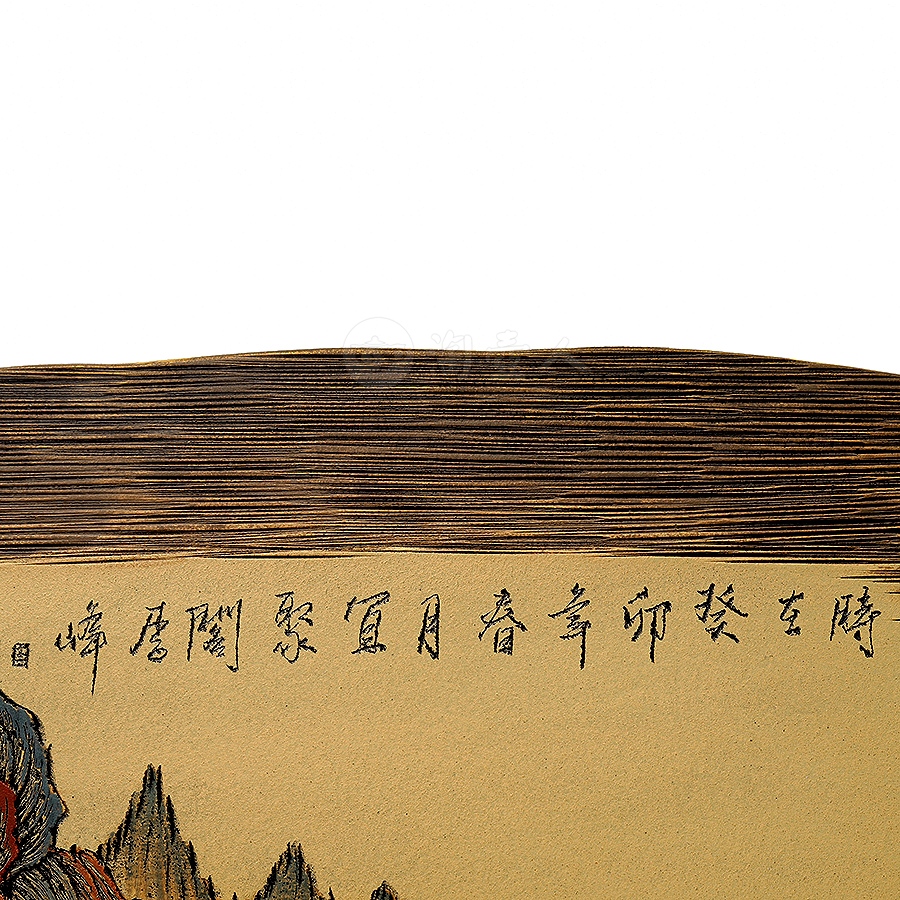 時在癸卯年春月宜聚閣李峰